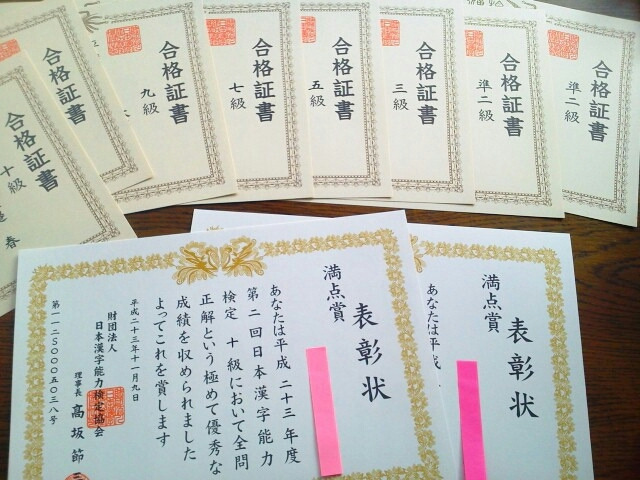 合格証書
準二級
合格証書
準二級
合格証書
三級
合格証書
五級
合格証書
七級
合格証書
九級
合格証書
合格証書
十級
春
表彰状
満点賞
あなたは平成
表彰状
満点賞
あなたは平成 二十三 年度
第二回日本漢字能力
検定 十級において全問
正解という極めて優秀な
成績を収められました
よってこれを賞します
平成二十三年十一月九日
財団法人
日本漢字能力検定協会
理事長 高坂 節三
第一一二S〇〇〇五〇三八号